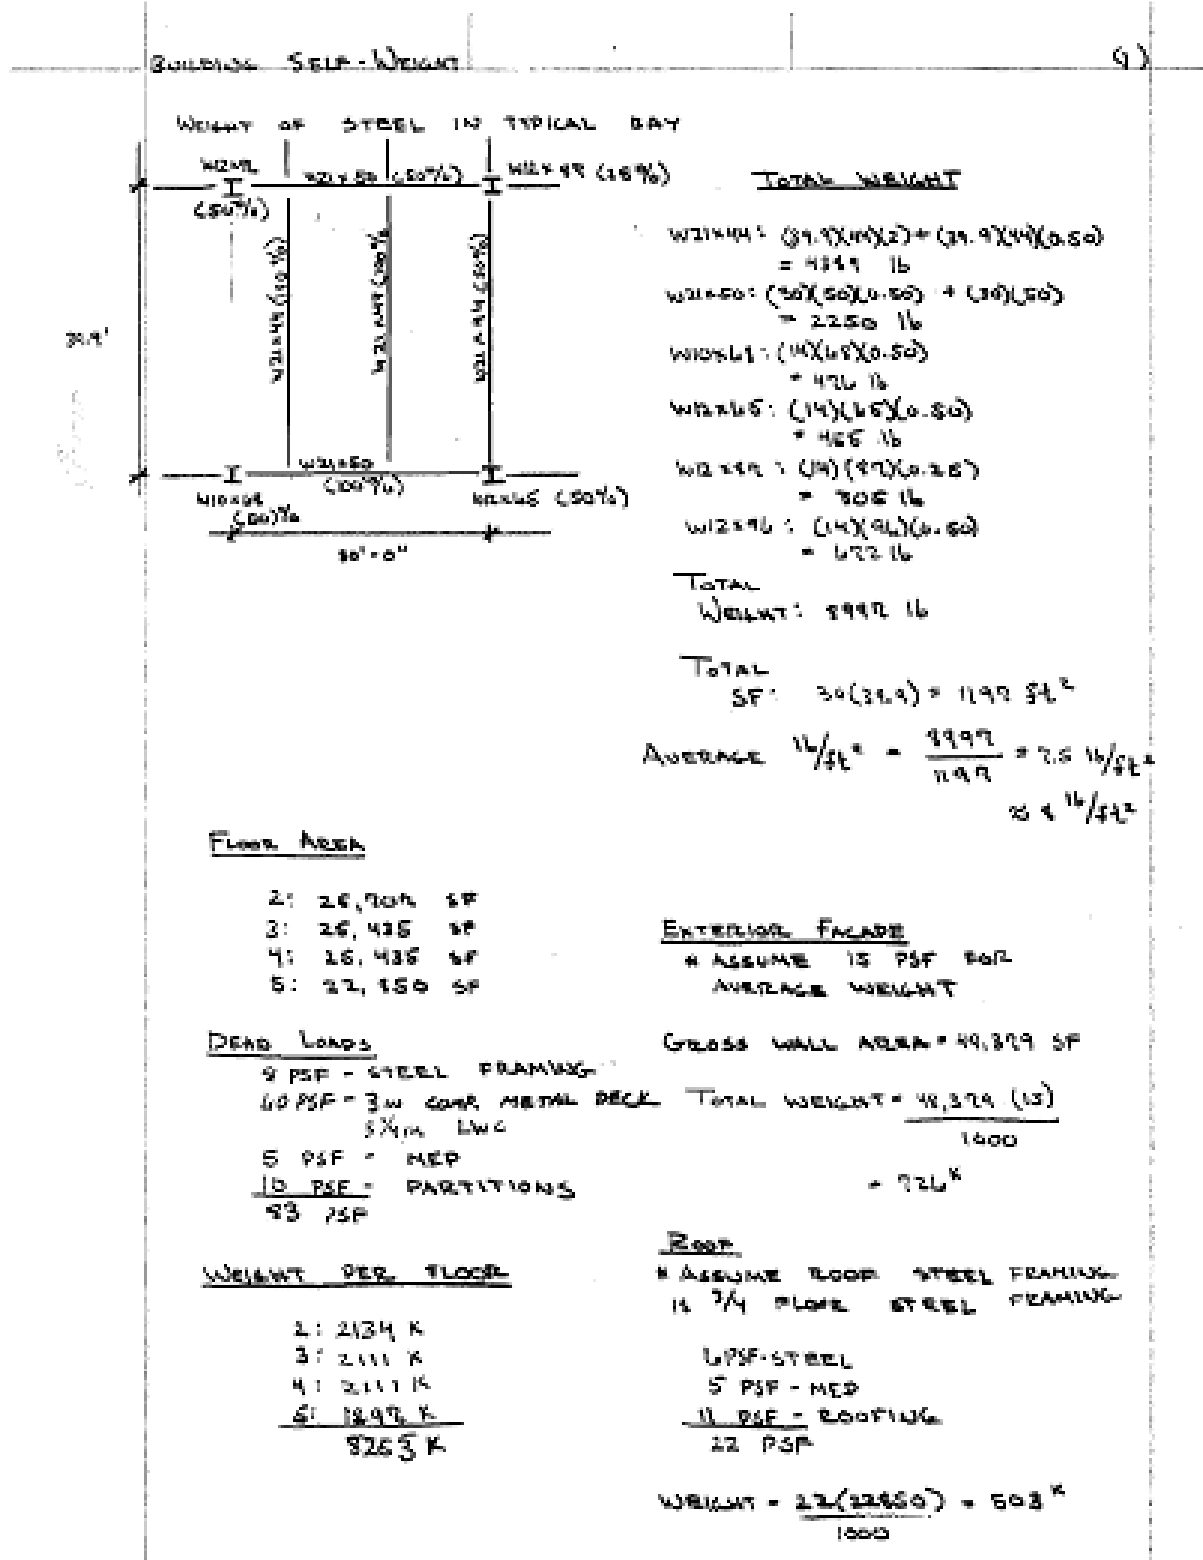 BUILDING SELF-WEIGHT
WEIGHT OF STEEL IN TYPICAL BAY
W21×50 (50%)
(50%)
W21×44 (100%)
W21×44 (100%)
W21×44 (50%)
W21×50
(100%)
W10×68
(50)%
W12×65 (50%)
30'-0"
TOTAL WEIGHT
W21×44: (39.9)(44)(2)+(39.9)(44)(0.50)
= 4389 lb
W21×50: (30)(50)(0.50) + (30)(50)
= 2250 lb
W10×68: (14)(68)(0.50)
= 476 lb
W12×65: (14)(65)(0.50)
= 455 lb
= 305 lb
W12×96: (14)(96)(0.50)
= 672 lb
TOTAL
WEIGHT:
TOTAL
SF: 30(39.9) = 1197 ft²
AVERAGE lb/ft² =
1197
= 7.5 lb/ft²
≈ 8 lb/ft²
FLOOR AREA
3: 25,435 SF
4: 25,435 SF
5: 22,850 SF
DEAD LOADS
8 PSF - STEEL FRAMING
60 PSF - 3in COMP. METAL DECK
LWC
5 PSF - MEP
10 PSF - PARTITIONS
83 PSF
WEIGHT PER FLOOR
2: 2134 K
3: 2111 K
4: 2111 K
5: 1897 K
8253 K
EXTERIOR FACADE
* ASSUME 15 PSF FOR
AVERAGE WEIGHT
GROSS WALL AREA =
TOTAL WEIGHT =
1000
= 726 K
ROOF
* ASSUME ROOF STEEL FRAMING
IS 3/4 FLOOR STEEL FRAMING
6 PSF - STEEL
5 PSF - MEP
11 PSF - ROOFING
22 PSF
WEIGHT = 22(22850) = 503 K
1000